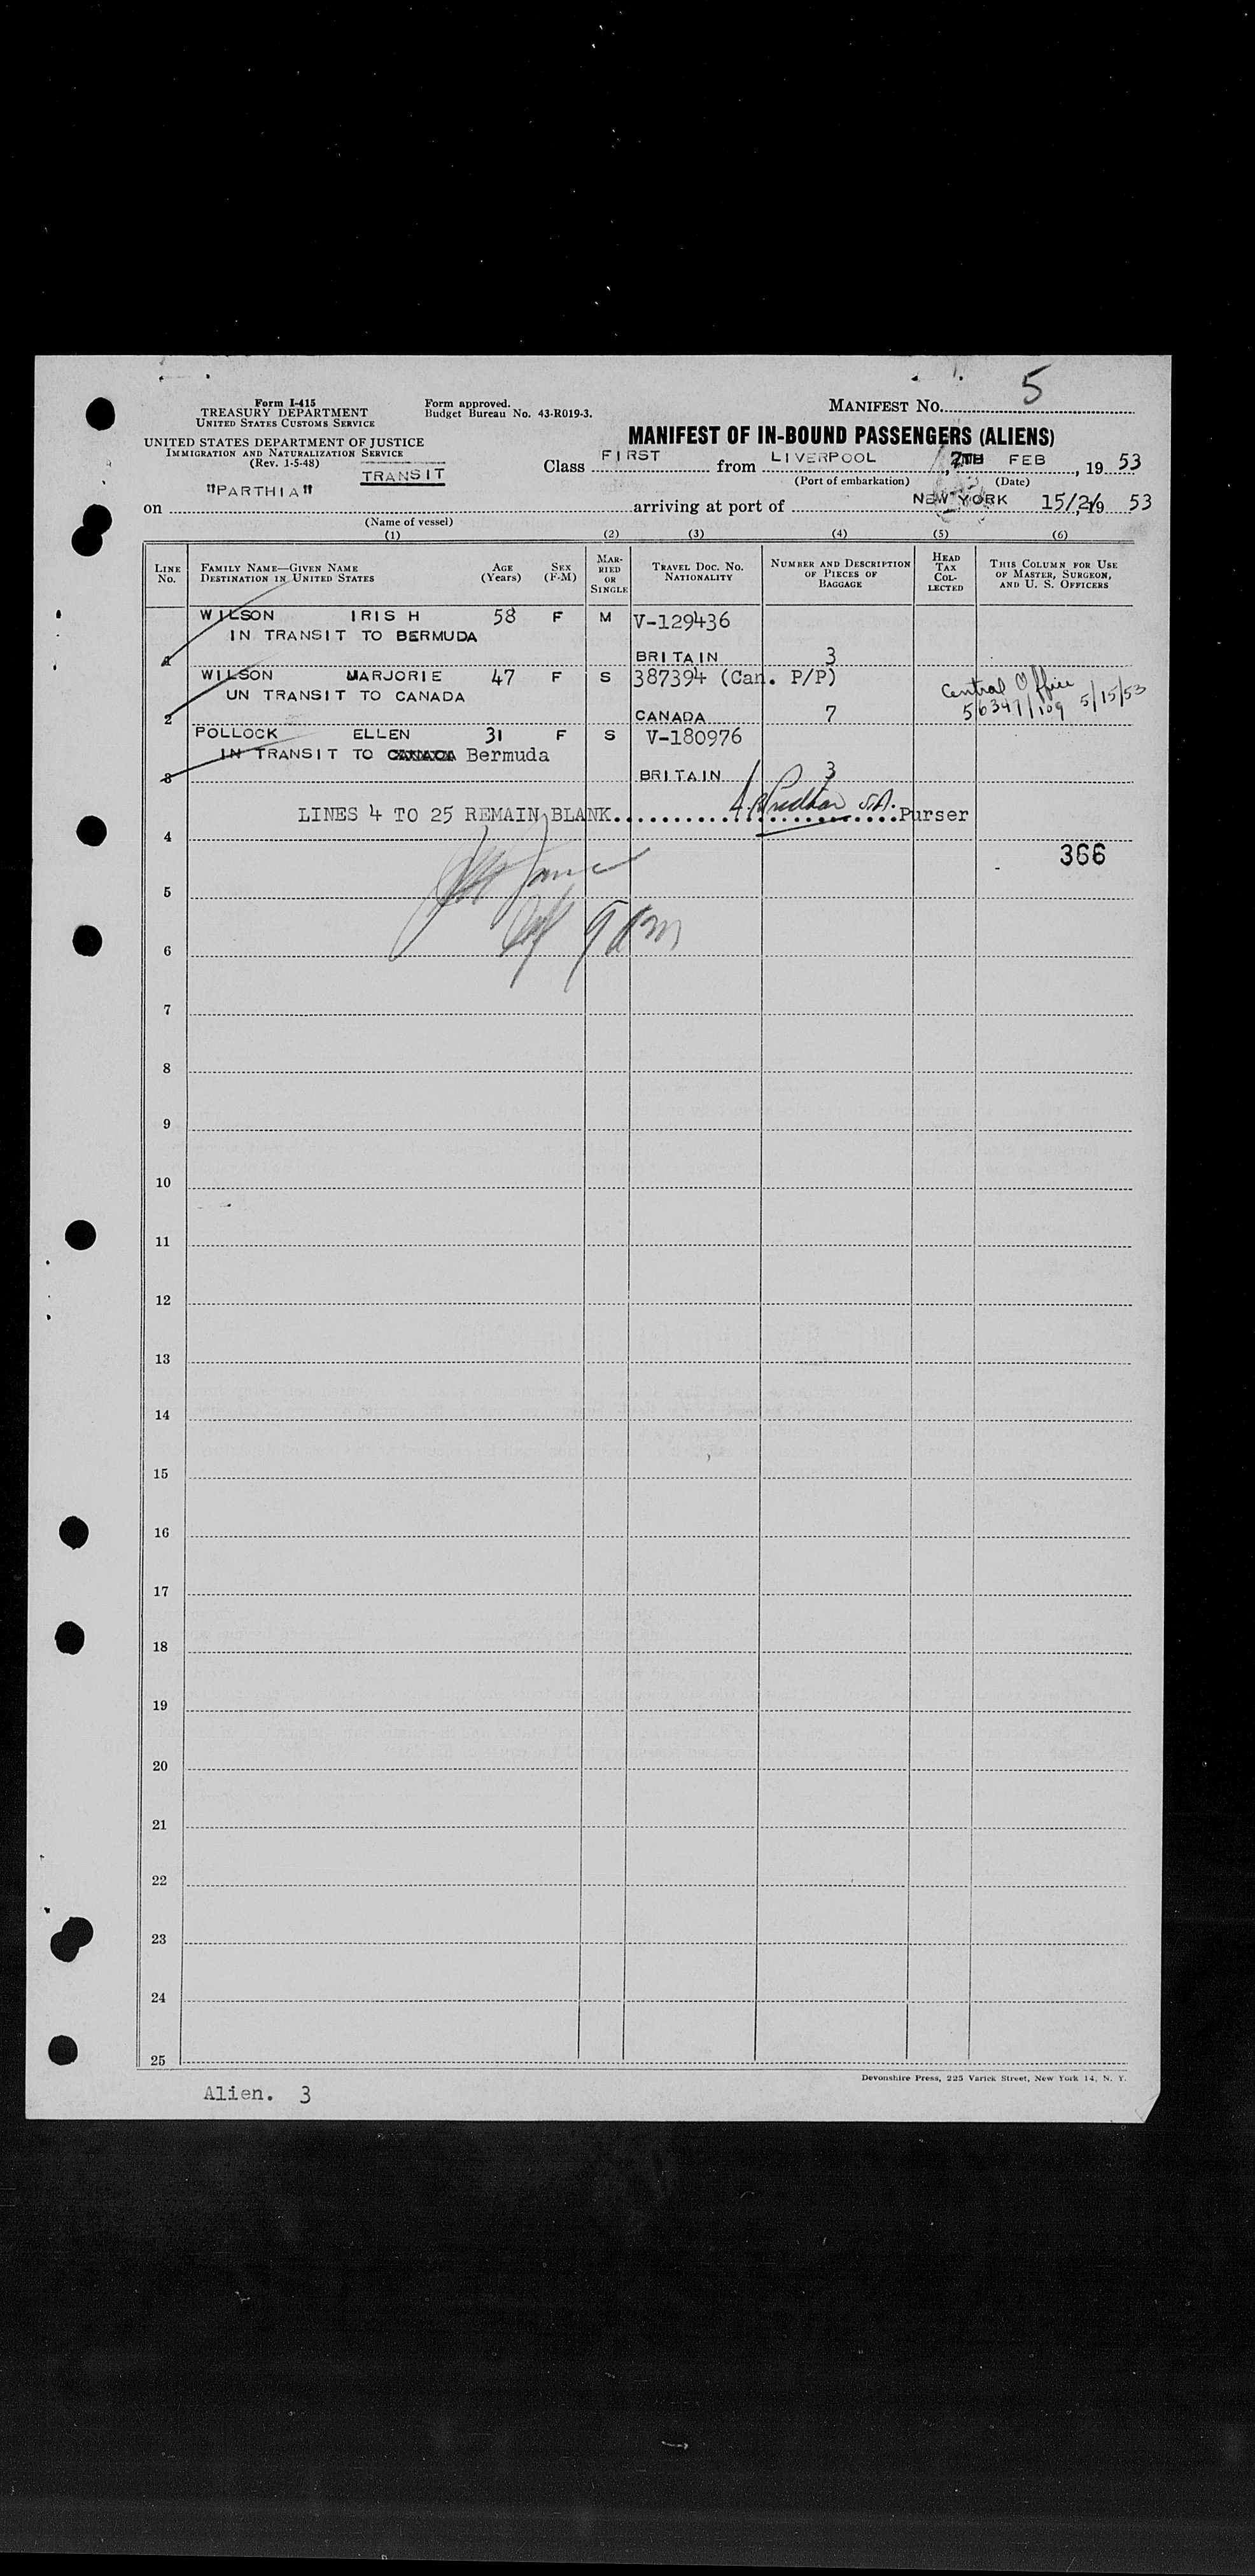 5
Form I-415
TREASURY DEPARTMENT
UNITED STATES CUSTOMS SERVICE
Form approved.
Budget Bureau No. 43-R019-3.
MANIFEST No.
UNITED STATES DEPARTMENT OF JUSTICE
IMMIGRATION AND NATURALIZATION SERVICE
(Rev. 1-5-48)
TRANSIT
MANIFEST OF IN-BOUND PASSENGERS (ALIENS)
Class FIRST from LIVERPOOL, 7TH FEB, 19 53
(Port of embarkation) (Date)
on "PARTHIA" arriving at port of NEW YORK 15/2/, 19 53
(Name of vessel)
(1) (2) (3) (4) (5) (6)
LINE No. FAMILY NAME—GIVEN NAME DESTINATION IN UNITED STATES AGE (Years) SEX (F-M) MARRIED OR SINGLE TRAVEL DOC. NO. NATIONALITY NUMBER AND DESCRIPTION OF PIECES OF BAGGAGE HEAD TAX COLLECTED THIS COLUMN FOR USE OF MASTER, SURGEON, AND U. S. OFFICERS
WILSON IRIS H 58 F M V-129436
IN TRANSIT TO BERMUDA
1 BRITAIN 3
WILSON MARJORIE 47 F S 387394 (Can. P/P)
UN TRANSIT TO CANADA
Central Office
2 CANADA 7 56347/109 5/15/53
POLLOCK ELLEN 31 F S V-180976
IN TRANSIT TO CANADA Bermuda
3 BRITAIN 3
LINES 4 TO 25 REMAIN BLANK Purser
4
366
5
6
7
8
9
10
11
12
13
14
15
16
17
18
19
20
21
22
23
24
25
Devonshire Press, 225 Varick Street, New York 14, N. Y.
Alien. 3